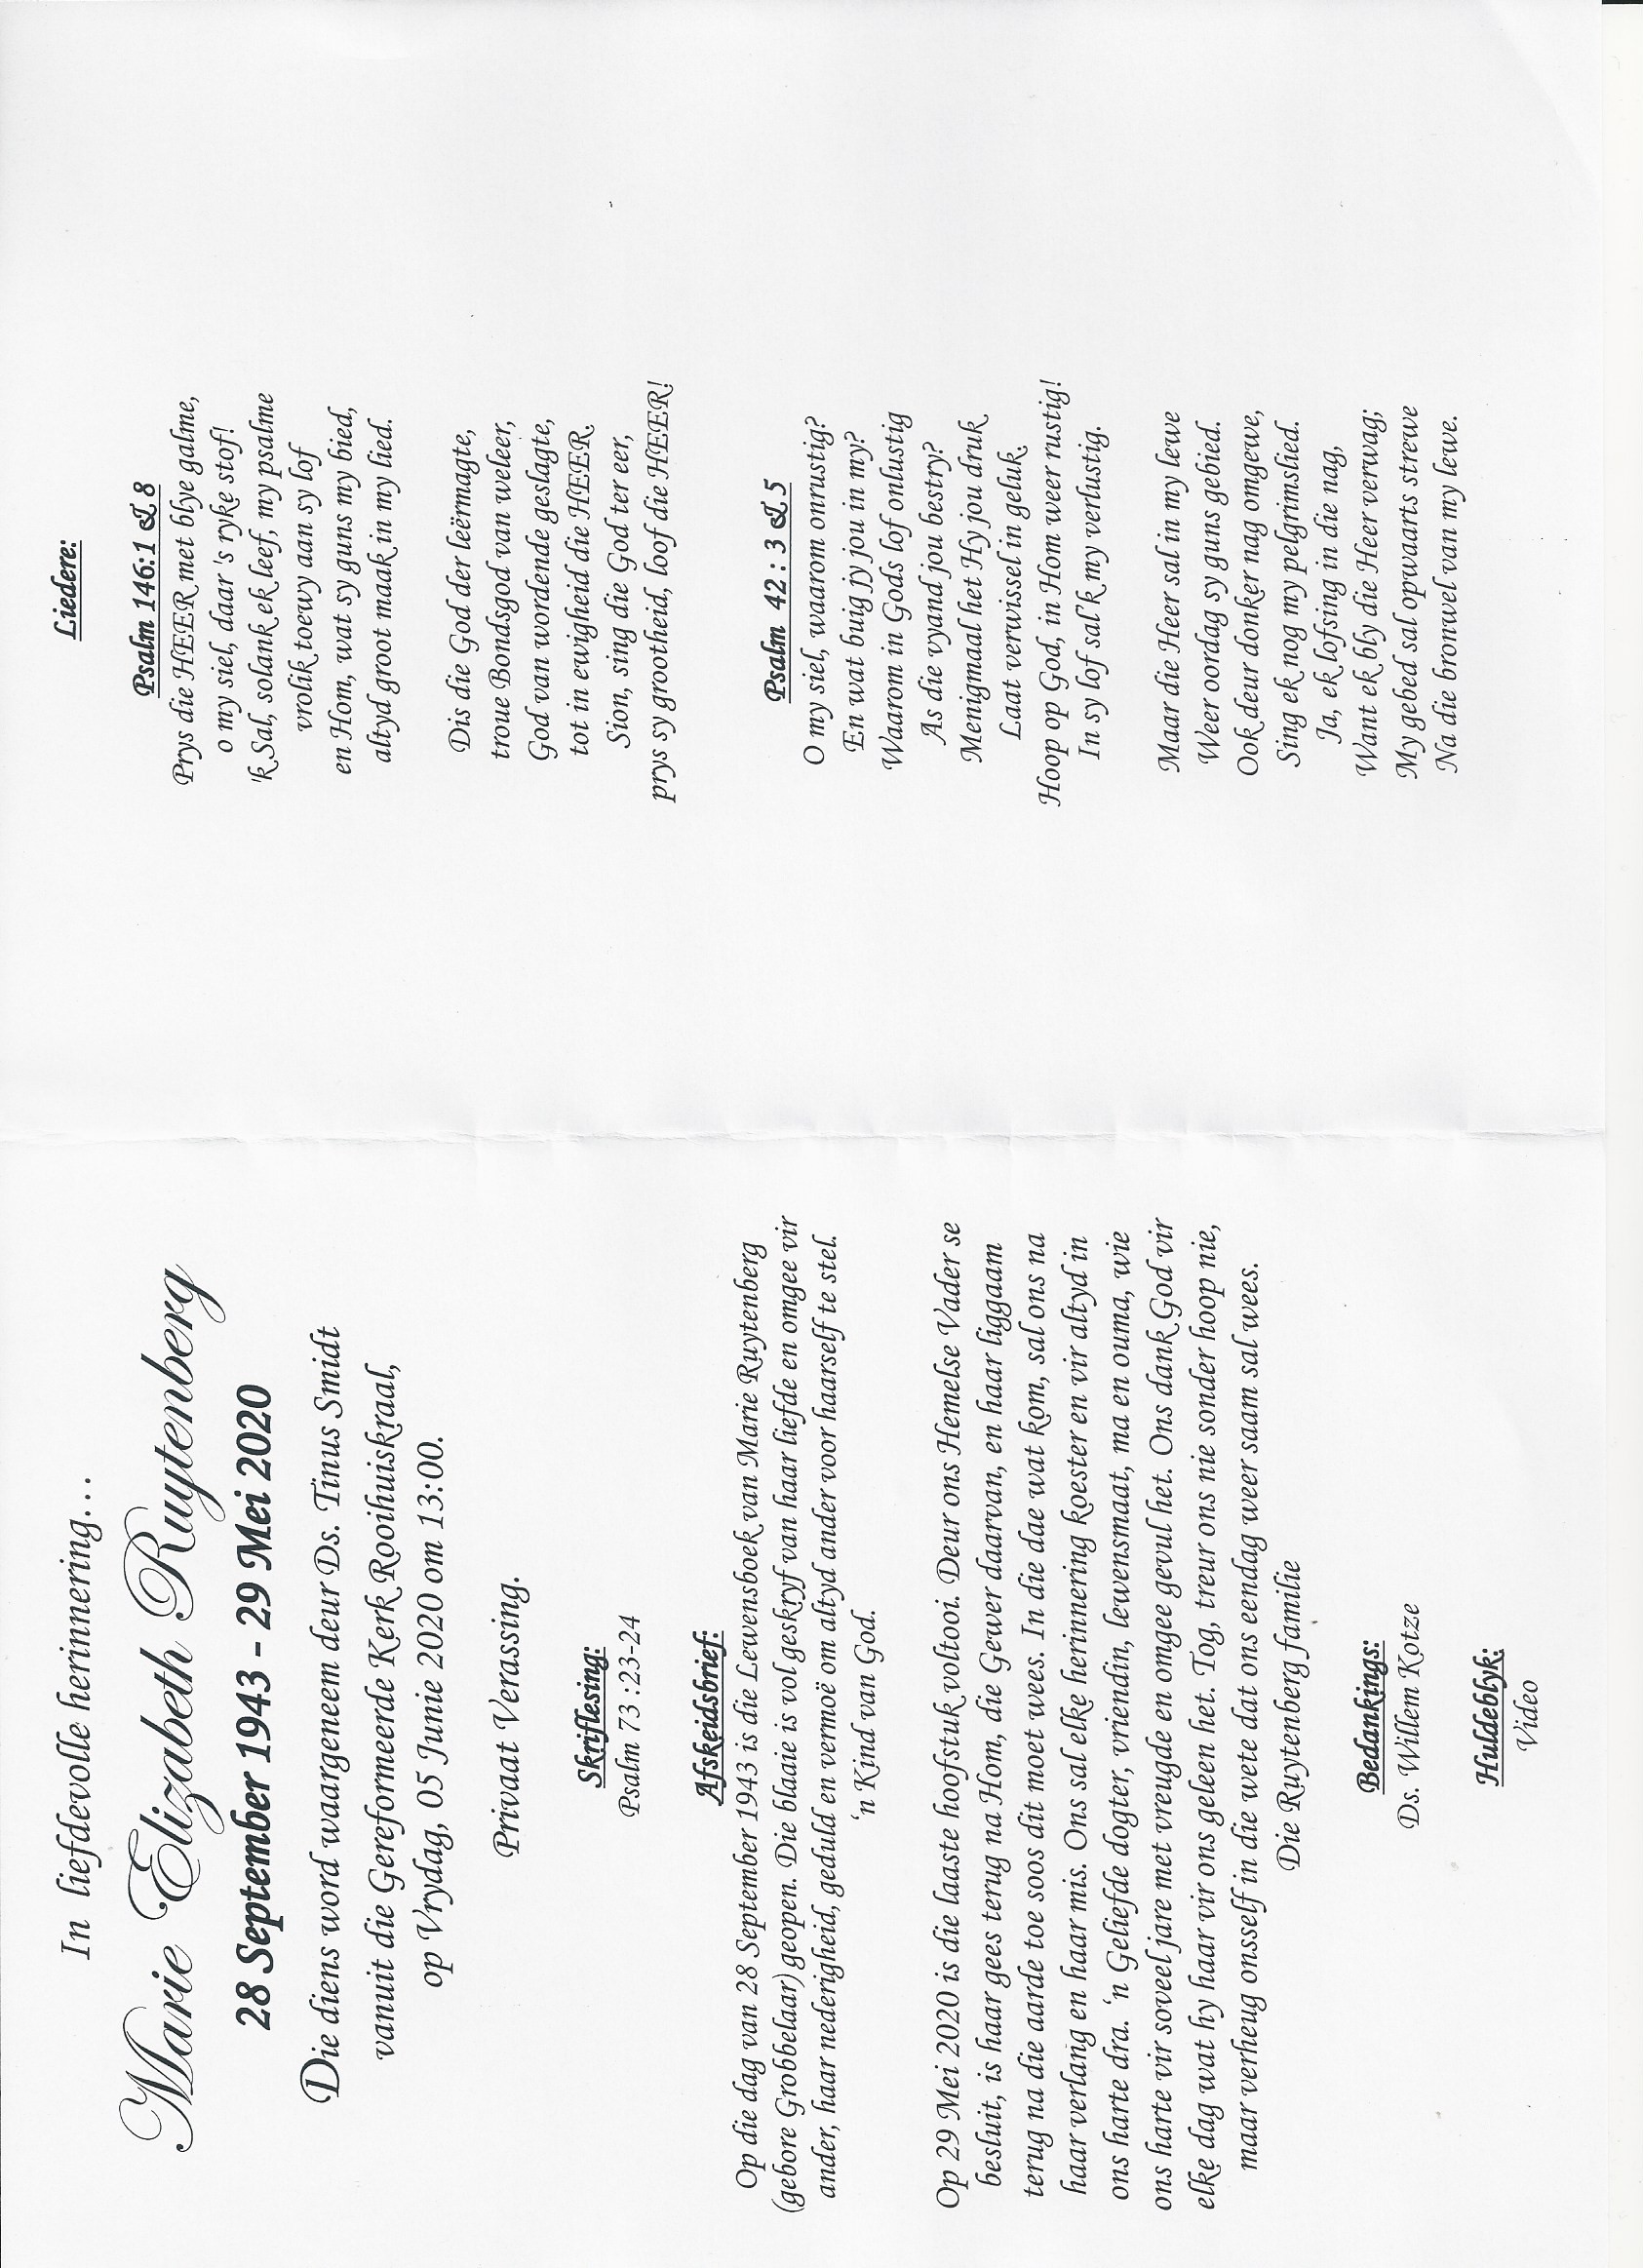 In liefdevolle herinnering...
Marie Elizabeth Ruytenberg
28 September 1943 - 29 Mei 2020
Die diens word waargeneem deur Ds. Tinus Smidt
vanuit die Gereformeerde Kerk Rooihuiskraal,
op Vrydag, 05 Junie 2020 om 13:00.
Privaat Verassing.
Skriflesing:
Psalm 73 :23-24
Afskeidsbrief:
Op die dag van 28 September 1943 is die Lewensboek van Marie Ruytenberg
(gebore Grobbelaar) geopen. Die blaaie is vol geskryf van haar liefde en omgee vir
ander, haar nederigheid, geduld en vermoë om altyd ander voor haarself te stel.
‘n Kind van God.
Op 29 Mei 2020 is die laaste hoofstuk voltooi. Deur ons Hemelse Vader se
besluit, is haar gees terug na Hom, die Gewer daarvan, en haar liggaam
terug na die aarde toe soos dit moet wees. In die dae wat kom, sal ons na
haar verlang en haar mis. Ons sal elke herinnering koester en vir altyd in
ons harte dra. ‘n Geliefde dogter, vriendin, lewensmaat, ma en ouma, wie
ons harte vir soveel jare met vreugde en omgee gevul het. Ons dank God vir
elke dag wat hy haar vir ons geleen het. Tog, treur ons nie sonder hoop nie,
maar verheug onsself in die wete dat ons eendag weer saam sal wees.
Die Ruytenberg familie
Bedankings:
Ds. Willem Kotze
Huldeblyk:
Video
Liedere:
Psalm 146:1 & 8
Prys die HEER met blye galme,
o my siel, daar 's ryke stof!
'k Sal, solank ek leef, my psalme
vrolik toewy aan sy lof
en Hom, wat sy guns my bied,
altyd groot maak in my lied.
Dis die God der leërmagte,
troue Bondsgod van weleer,
God van wordende geslagte,
tot in ewigheid die HEER.
Sion, sing die God ter eer,
prys sy grootheid, loof die HEER!
Psalm 42 : 3 & 5
O my siel, waarom onrustig?
En wat buig jy jou in my?
Waarom in Gods lof onlustig
As die vyand jou bestry?
Menigmaal het Hy jou druk
Laat verwissel in geluk.
Hoop op God, in Hom weer rustig!
In sy lof sal'k my verlustig.
Maar die Heer sal in my lewe
Weer oordag sy guns gebied.
Ook deur donker nag omgewe,
Sing ek nog my pelgrimslied.
Ja, ek lofsing in die nag,
Want ek bly die Heer verwag;
My gebed sal opwaarts strewe
Na die bronwel van my lewe.